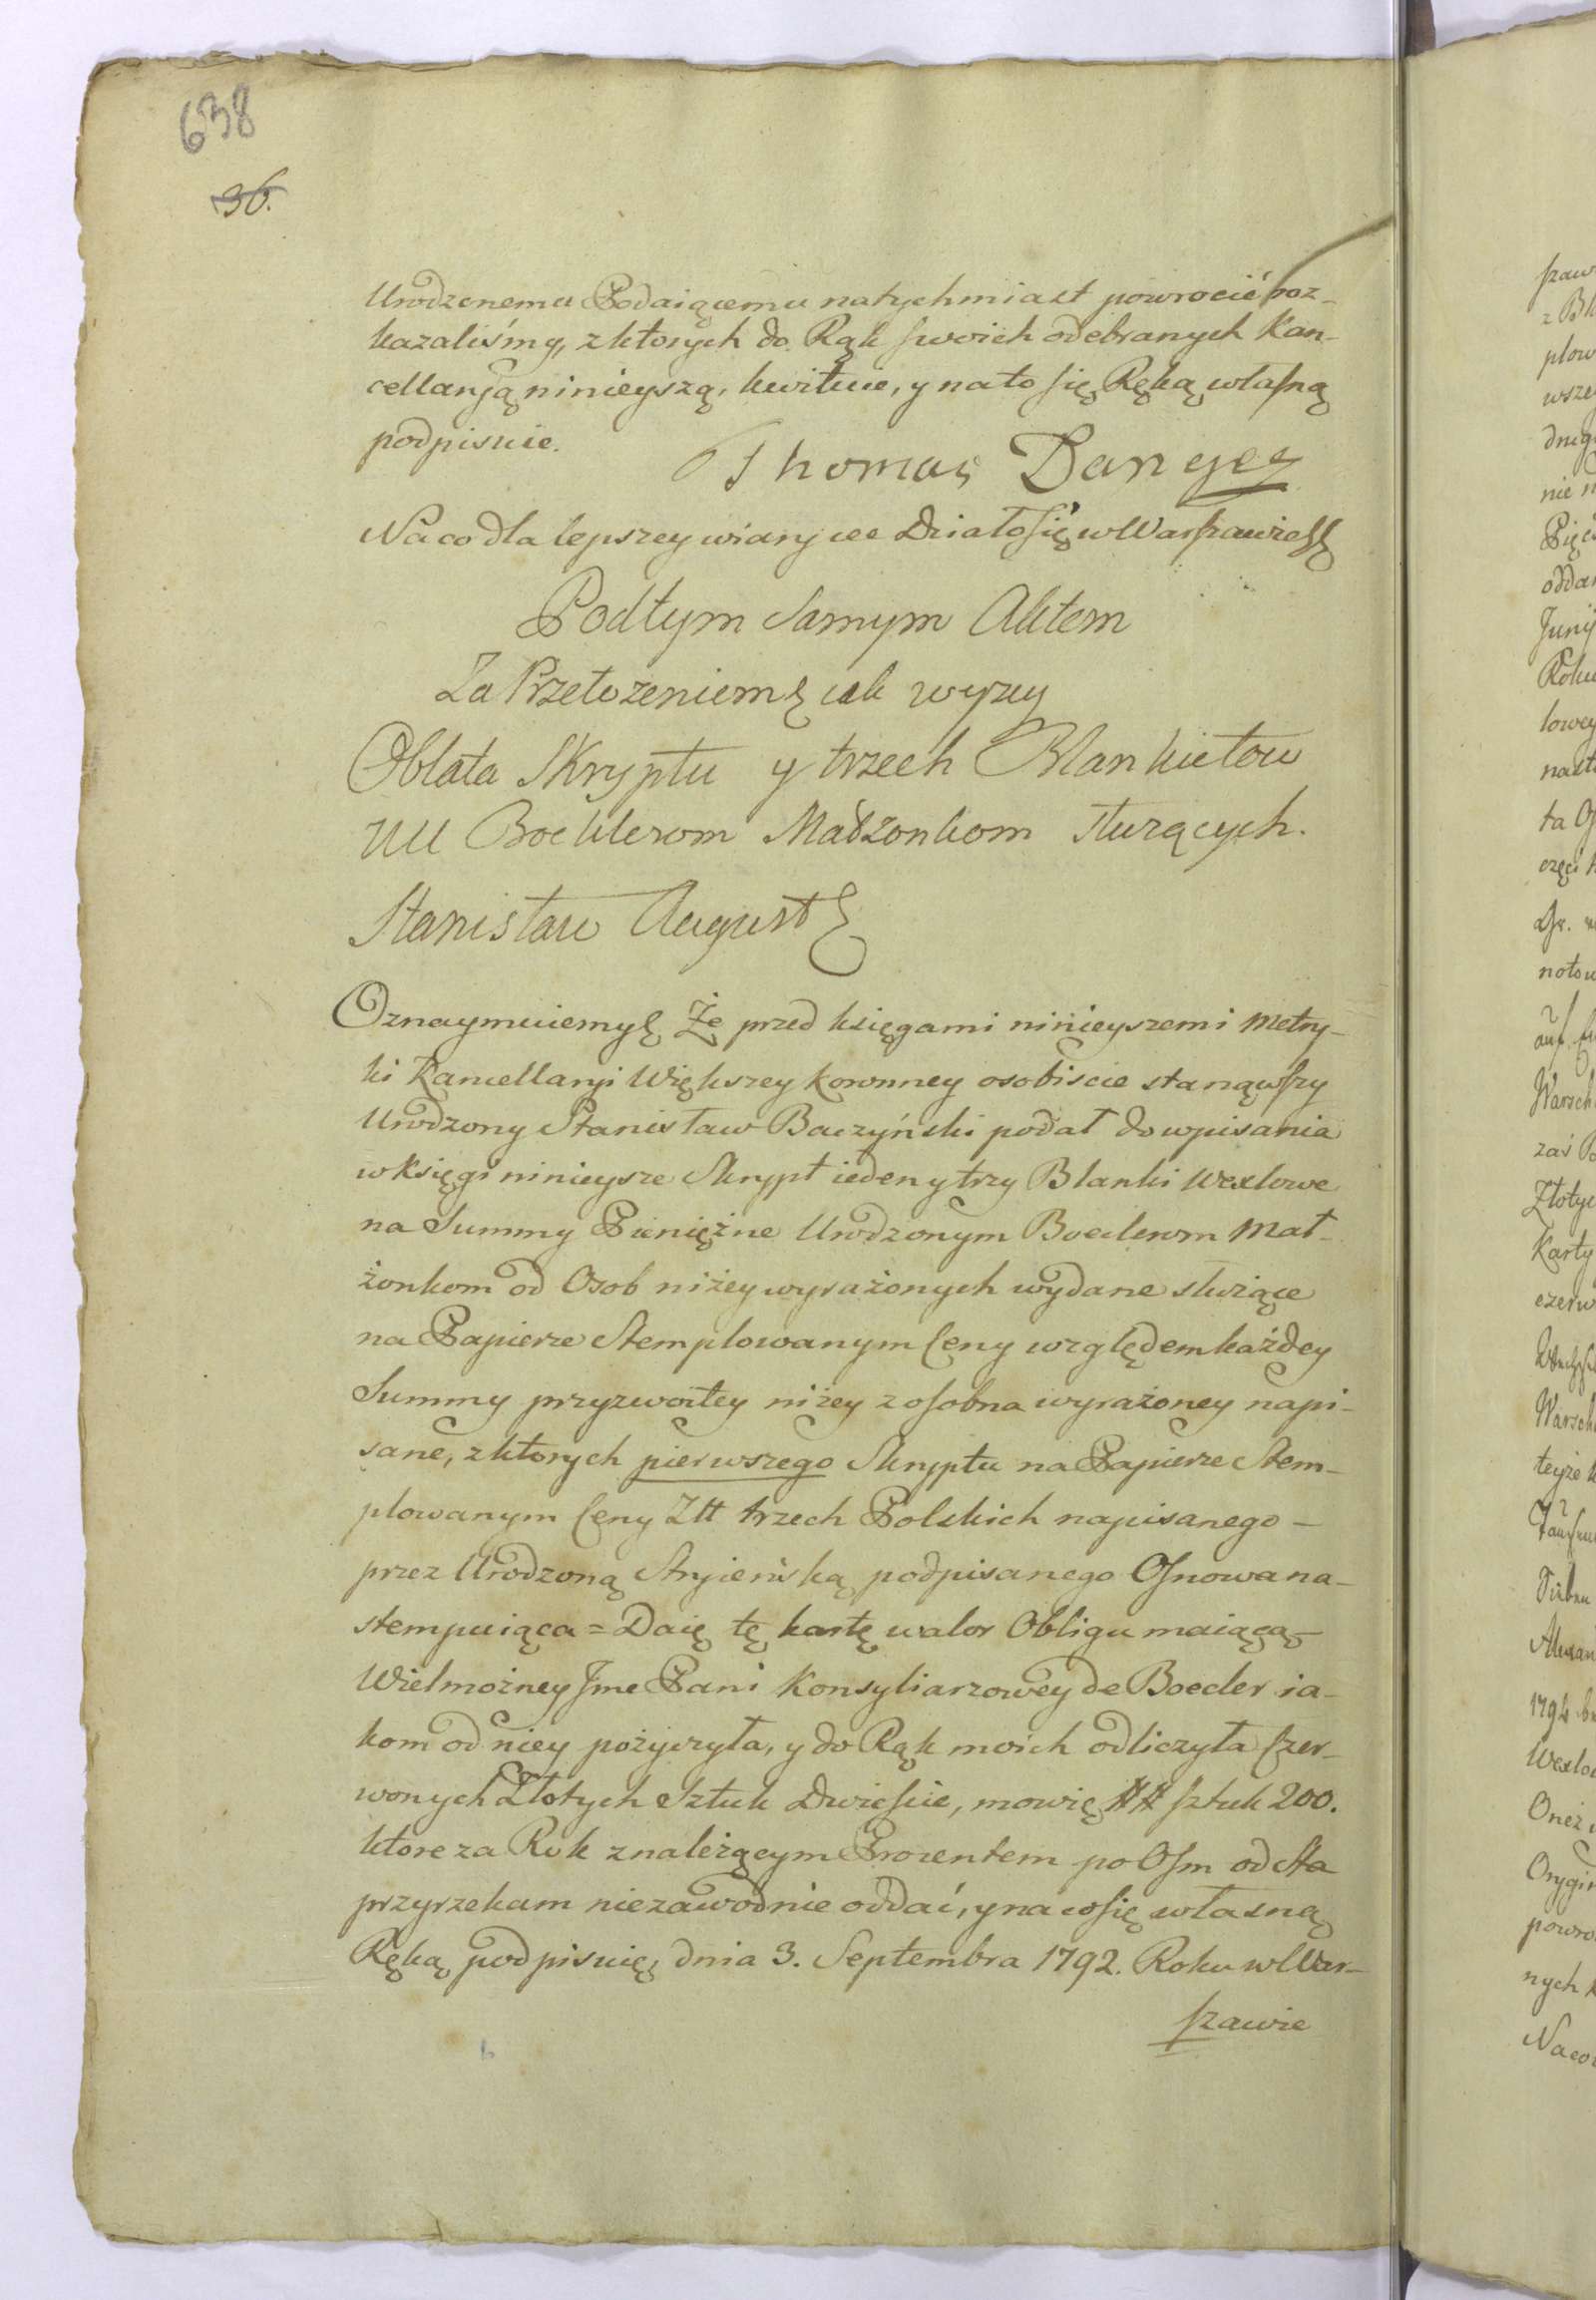 638
36.
Urodzonemu Podaiącemu natychmiast powrocić roz-
kazaliśmy, z ktorych do Rąk swoich odebranych Kan-
cellaryą ninieyszą, kwituie, y na to się Ręką własną
podpisuie.
Thomas Dangel
Na co dla lepszey wiary Działo się w Warszawie
Pod tym samym Aktem
Za Przełożeniem jak wyzey
Oblata Skryptu y trzech Blankietow
UU Boeklerom Małżonkom służących.
Stanisław August
Oznaymuiemy Że przed księgami ninieyszemi Metry-
ki Kancellaryi Większey Koronney osobiscie stanąwszy
Urodzony Stanisław Baczyński podał do wpisania
w księgi ninieysze Skrypt ieden y trzy Blanki Wexlowe
na Summy Pieniężne Urodzonym Boeclerom Mał-
żonkom od Osob niżey wyrażonych wydane służące
na Papierze Stemplowanym Ceny względem każdey
Summy przyzwoitey niżey z osobna wyrażoney napi-
sane, z ktorych pierwszego Skryptu na Papierze Stem-
plowanym Ceny Złł trzech Polskich napisanego -
przez Urodzoną Stryieńską podpisanego Osnowa na-
stempuiąca = Daię tę kartę walor Obligu maiącą -
Wielmożney Jme Pani Konsyliarzowey de Boecler ia-
kom od niey pożyczyła, y do Rąk moich odliczyła Czer-
wonych Złotych Sztuk Dwieście, mowię ## sztuk 200.
ktore za Rok z należącym Procentem po Osm od Sta
przyrzekam niezawodnie oddać, y na co się własną
Ręką podpisuię, dnia 3. Septembra 1792. Roku w War-
szawie